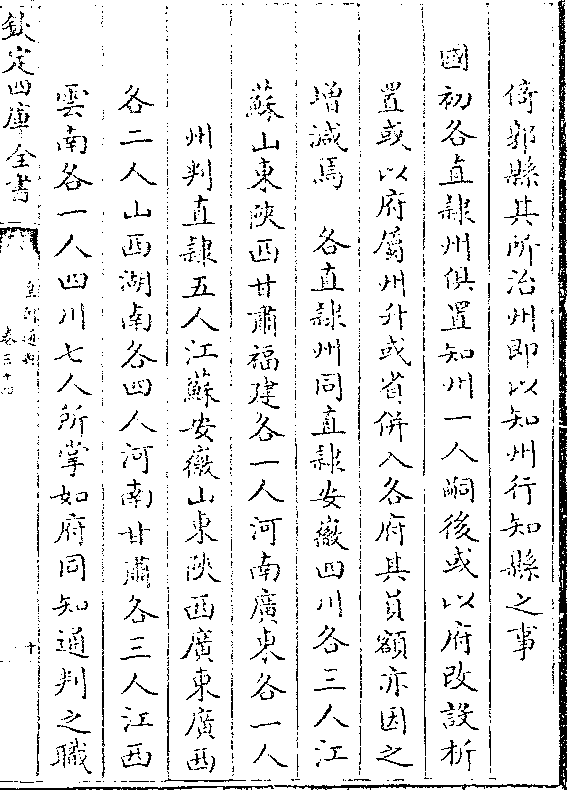 倚郭縣其所治州即以知州行知縣之事
國初各直隷州俱置知州一人嗣後或以府改設析
置或以府屬州升或省併入各府其員額亦因之
增減焉　各直隷州同直隷安徽四川各三人江
蘇山東陜西甘肅福建各一人河南廣東各一人
州判直隷五人江蘇安徽山東陜西廣東廣西
各二人山西湖南各四人河南甘肅各三人江西
雲南各一人四川七人所掌如府同知通判之職
欽定四庫全書
皇朝通典
卷三十四
十